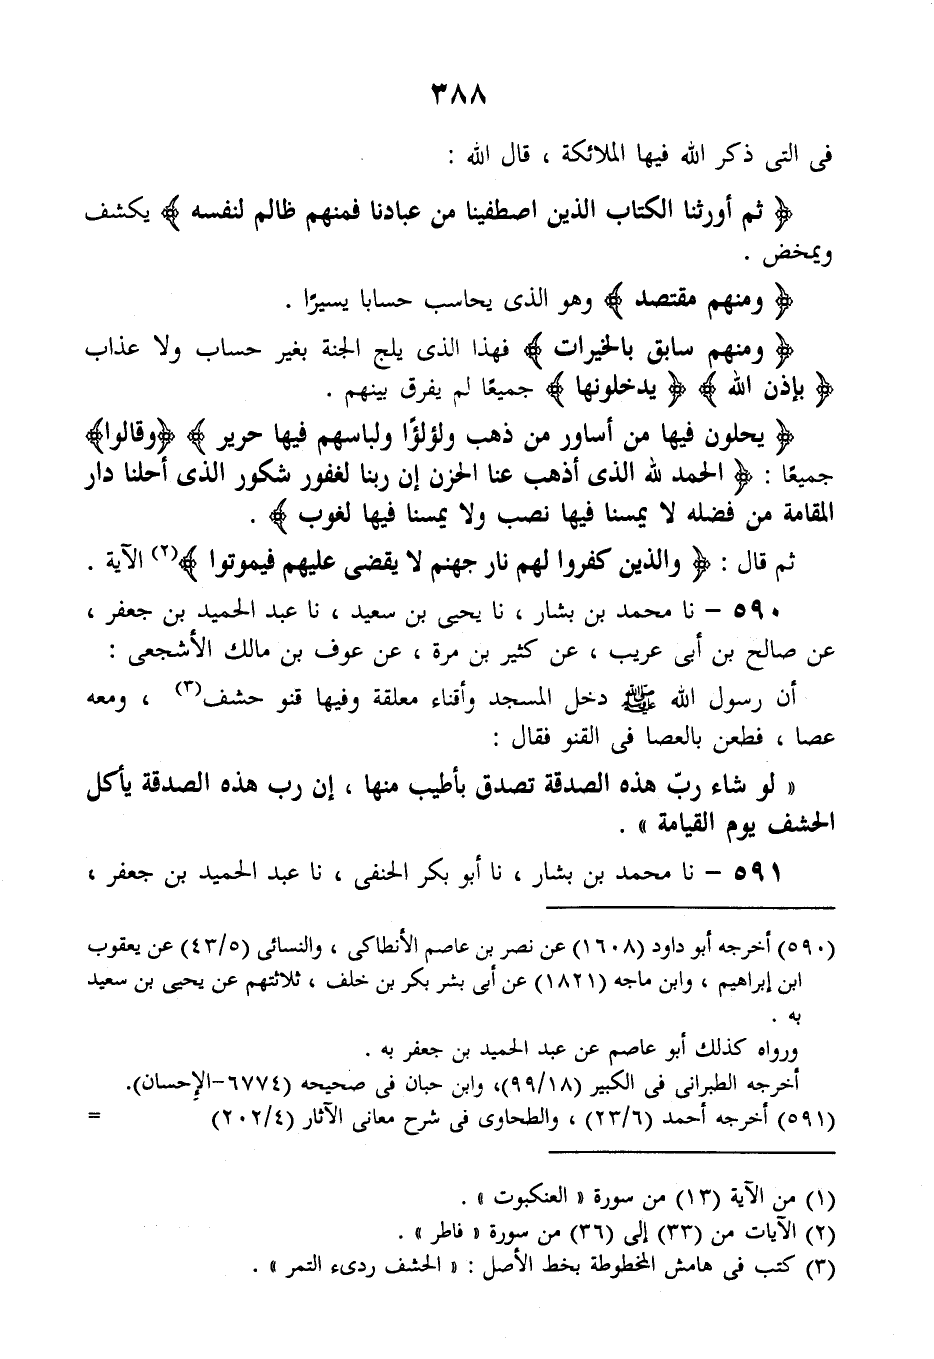 ٣٨٨
فى التى ذكر الله فيها الملائكة ، قال الله :
﴿ ثم أورثنا الكتاب الذين اصطفينا من عبادنا فمنهم ظالم لنفسه ﴾ يكشف
ويمخض .
﴿ ومنهم مقتصد ﴾ وهو الذى يحاسب حسابا يسيرًا .
﴿ ومنهم سابق بالخيرات ﴾ فهذا الذى يلج الجنة بغير حساب ولا عذاب
﴿ بإذن الله ﴾ ﴿ يدخلونها ﴾ جميعًا لم يفرق بينهم .
﴿ يحلون فيها من أساور من ذهب ولؤلؤًا ولباسهم فيها حرير ﴾ ﴿وقالوا﴾
جميعًا : ﴿ الحمد لله الذى أذهب عنا الحزن إن ربنا لغفور شكور الذى أحلنا دار
المقامة من فضله لا يمسنا فيها نصب ولا يمسنا فيها لغوب ﴾ .
ثم قال : ﴿ والذين كفروا لهم نار جهنم لا يقضى عليهم فيموتوا ﴾(٢) الآية .
٥٩٠ – نا محمد بن بشار ، نا يحيى بن سعيد ، نا عبد الحميد بن جعفر ،
عن صالح بن أبى عريب ، عن كثير بن مرة ، عن عوف بن مالك الأشجعى :
أن رسول الله ﷺ دخل المسجد وأقناء معلقة وفيها قنو حشف(٣) ، ومعه
عصا ، فطعن بالعصا فى القنو فقال :
« لو شاء ربّ هذه الصدقة تصدق بأطيب منها ، إن رب هذه الصدقة يأكل
الحشف يوم القيامة » .
٥٩١ – نا محمد بن بشار ، نا أبو بكر الحنفى ، نا عبد الحميد بن جعفر ،
(٥٩٠) أخرجه أبو داود (١٦٠٨) عن نصر بن عاصم الأنطاكى ، والنسائى (٤٣/٥) عن يعقوب
ابن إبراهيم ، وابن ماجه (١٨٢١) عن أبى بشر بكر بن خلف ، ثلاثتهم عن يحيى بن سعيد
به .
ورواه كذلك أبو عاصم عن عبد الحميد بن جعفر به .
أخرجه الطبرانى فى الكبير (٩٩/١٨)، وابن حبان فى صحيحه (٦٧٧٤–الإحسان).
(٥٩١) أخرجه أحمد (٢٣/٦) ، والطحاوى فى شرح معانى الآثار (٢٠٢/٤) =
(١) من الآية (١٣) من سورة « العنكبوت » .
(٢) الآيات من (٣٣) إلى (٣٦) من سورة « فاطر » .
(٣) كتب فى هامش المخطوطة بخط الأصل : « الحشف ردىء التمر » .